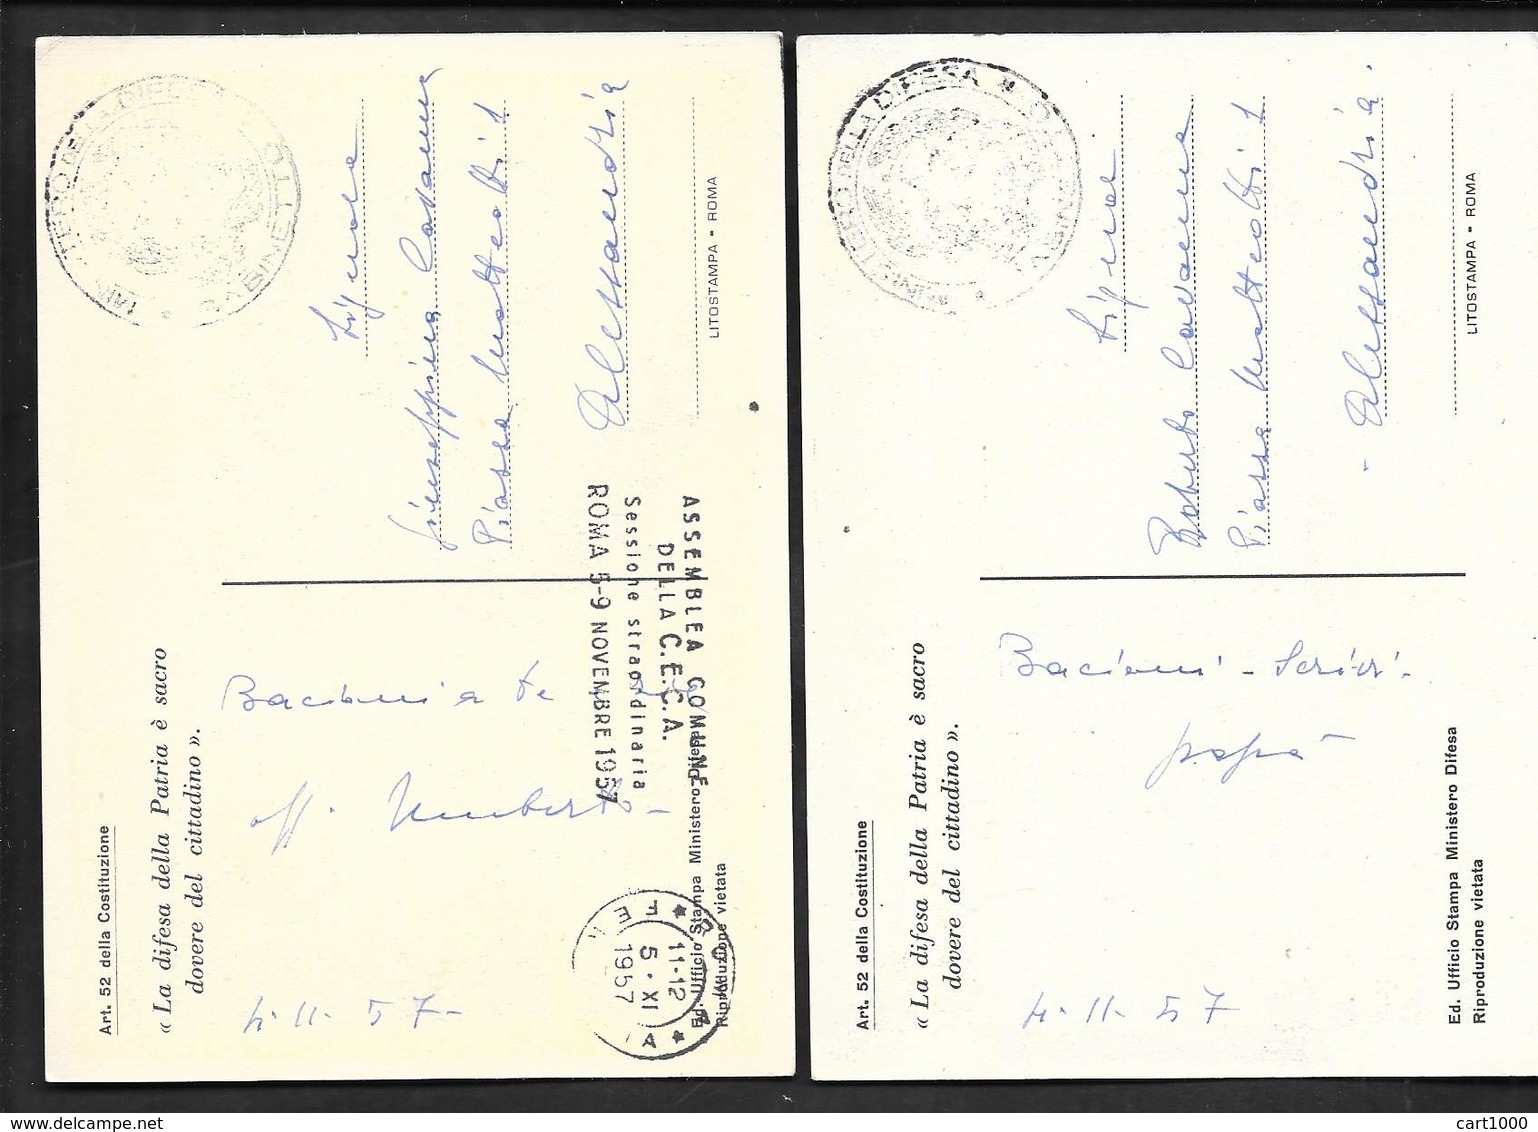 Art. 52 della Costituzione
« La difesa della Patria è sacro
dovere del cittadino ».
MINISTERO DELLA DIFESA
GABINETTO
Bacioni a te
aff. Umberto -
4.11.57-
Signora
Giuseppina Cavanna
Piazza Matteotti 1
Alessandria
ASSEMBLEA COMUNE
DELLA C.E.C.A.
Sessione straordinaria
ROMA 5-9 NOVEMBRE 1957
ROMA
11-12
5 · XI
1957
Ed. Ufficio Stampa Ministero Difesa
Riproduzione vietata
LITOSTAMPA - ROMA
Art. 52 della Costituzione
« La difesa della Patria è sacro
dovere del cittadino ».
MINISTERO DELLA DIFESA
Bacioni - Scrivi -
papà
4.11.57
Signor
Roberto Cavanna
Piazza Matteotti 1
- Alessandria -
Ed. Ufficio Stampa Ministero Difesa
Riproduzione vietata
LITOSTAMPA - ROMA
www.delcampe.net
cart1000